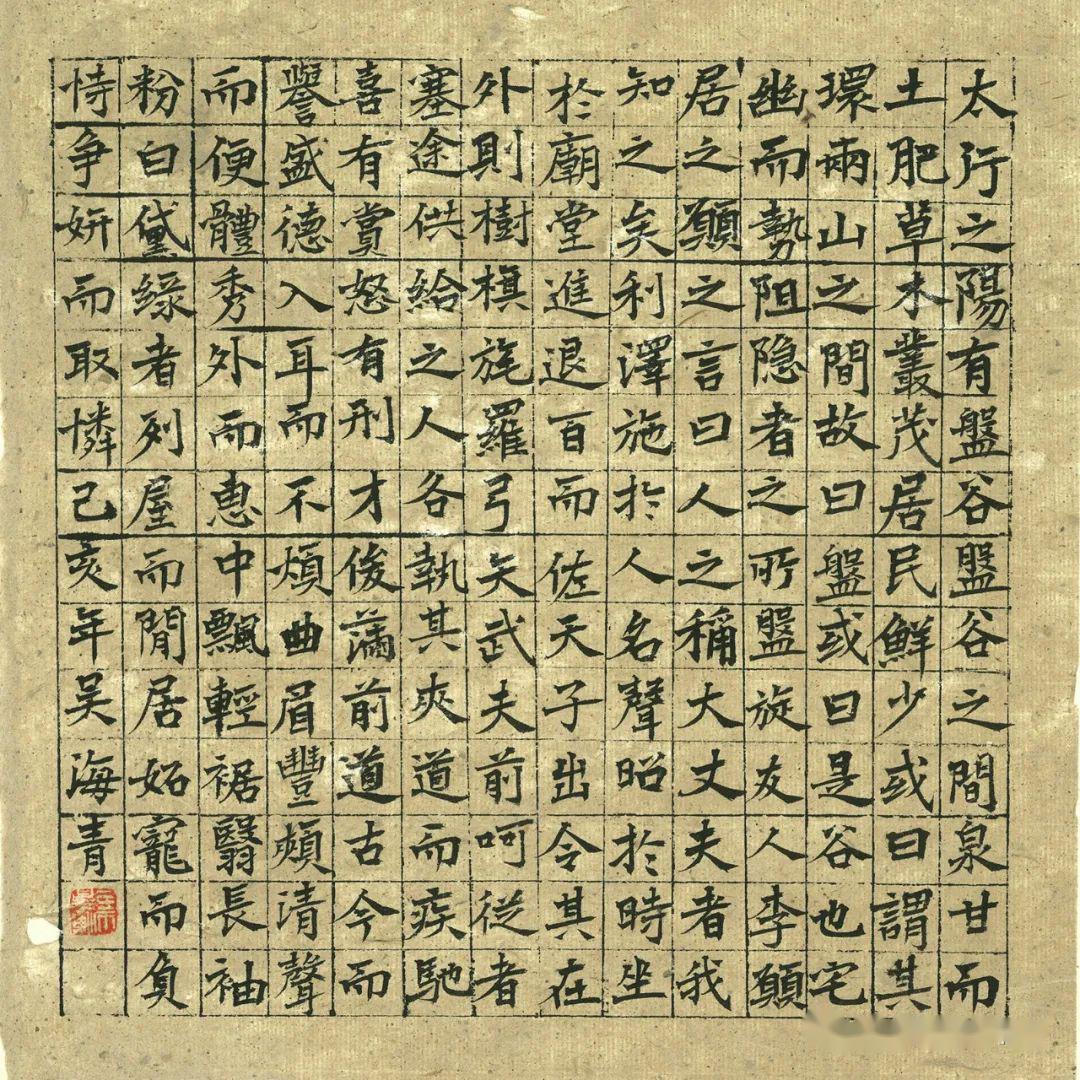 太行之陽有盤谷盤谷之間泉甘而
土肥草木叢茂居民鮮少或曰謂其
環兩山之間故曰盤或曰是谷也宅
幽而勢阻隐者之所盤旋友人李願
居之願之言曰人之稱大丈夫者我
知之矣利澤施於人名聲昭於時坐
於廟堂進退百而佐天子出令其在
外則樹棋旄羅弓矢武夫前呵從者
塞途供給之人各執其夾道而疾馳
喜有賞怒有刑才俊滿前道古今而
譽盛德入耳而不煩曲眉豐頰清聲
而便體秀外而惠中飄輕裾翳長袖
粉白黛緑者列屋而閒居妬寵而負
恃争妍而取憐己亥年吴海青